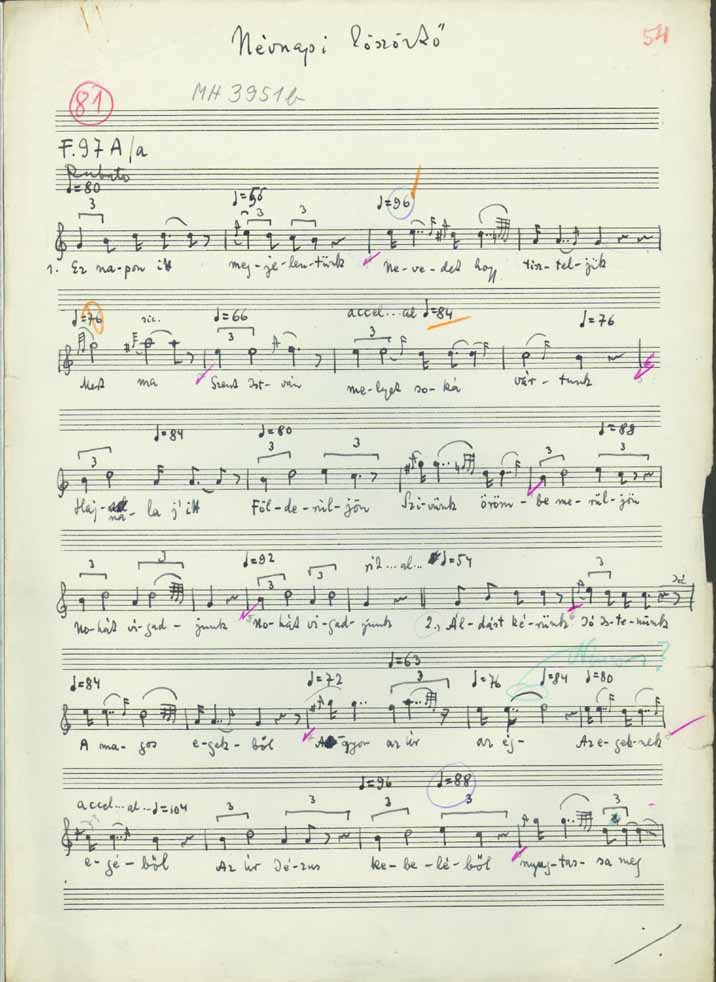 Névnapi köszöntő
54
81
MH 3951b
F. 97 A/a
Rubato
♩=80 ♩=56 ♩=96
3 3 3
1. Ez na-pon itt meg-je-len-tünk Ne-ve-det hogy tisz-tel-jük
♩=76 sic. ♩=66 accel... al ♩=84 ♩=76
3 3
Mert ma Szent Ist-ván me-lyet so-ká vár-tunk
♩=84 ♩=80 ♩=88
3 3 3 3 3
Haj-na-la j' itt Föl-de-rül-jön Szi-vünk öröm-be me-rül-jön
♩=92 rit... al... ♩=54
3 3 3 3 3
No-hát vi-gad-junk No-hát vi-gad-junk 2., Ál-dást ké-rünk Jó Is-te-nünk
♩=84 ♩=72 ♩=63 ♩=76 ♩=84 ♩=80
3
A ma-gos e-gek-ből A gyon az úr az ég- Az e-gek-nek
accel... al... ♩=104 ♩=96 ♩=88
3 3 3 3 3
e-gé-ből Az úr Jé-zus ke-be-lé-ből nyug-tas-sa meg